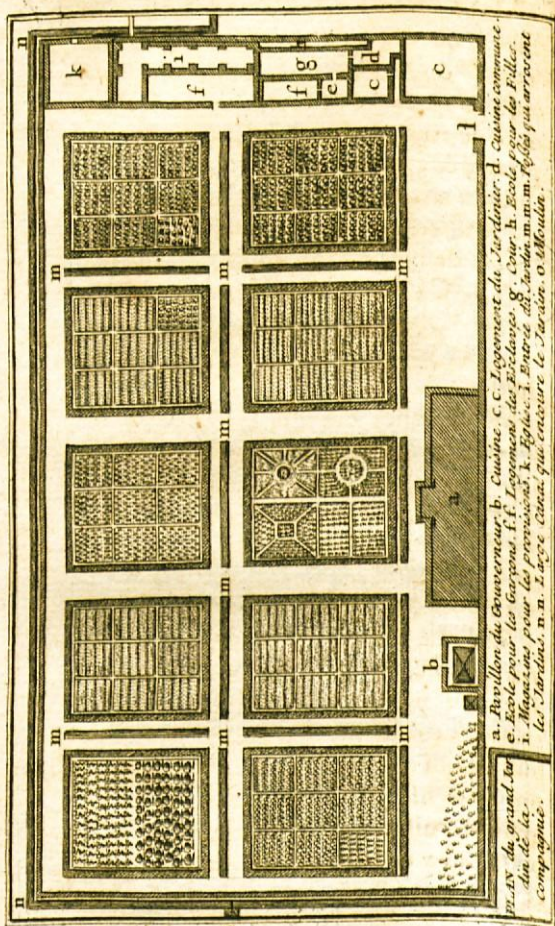 PLAN du grand Jar
din de la
Compagnie.
a. Pavillon du Gouverneur. b. Cuisine. c. c. Logement du Jardinier. d. Cuisine commune.
e. Ecole pour les Garçons. f f. Logemens des Esclaves. g. Cour. h. Ecole pour les Filles.
i. Magazins pour les provisions. k. Eglise. l. Entrée du Jardin. m. m. m. Rigoles qui arrosent
les Jardins. n. n. Large Canal qui entoure le Jardin. o. Moulin.
n
k
i
f
g
d
f
e
c
c
l
m
m
m
m
m
m
m
m
a
b
n